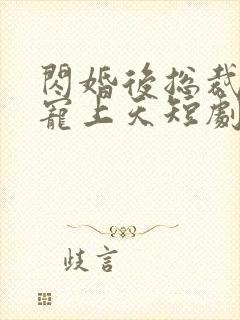 閃婚後總裁
寵上天短劇
歧言